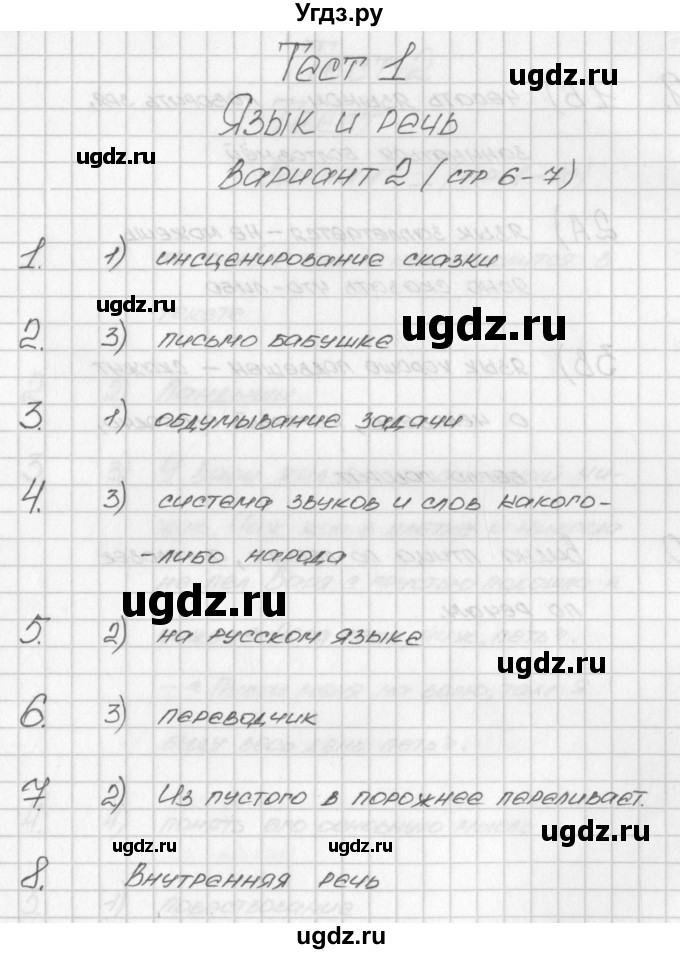 Угдз.ру
Тест 1
Язык и речь
Вариант 2 (стр 6-7)
1. 1) инсценирование сказки
2. 3) письмо бабушке
3. 1) обдумывание задачи
4. 3) система звуков и слов какого-
-либо народа
5. 2) на русском языке
6. 3) переводчик
7. 2) Из пустого в порожнее переливает.
8. Внутренняя речь
ugdz.ru
ugdz.ru
ugdz.ru
ugdz.ru
ugdz.ru
ugdz.ru
ugdz.ru
ugdz.ru
ugdz.ru
ugdz.ru